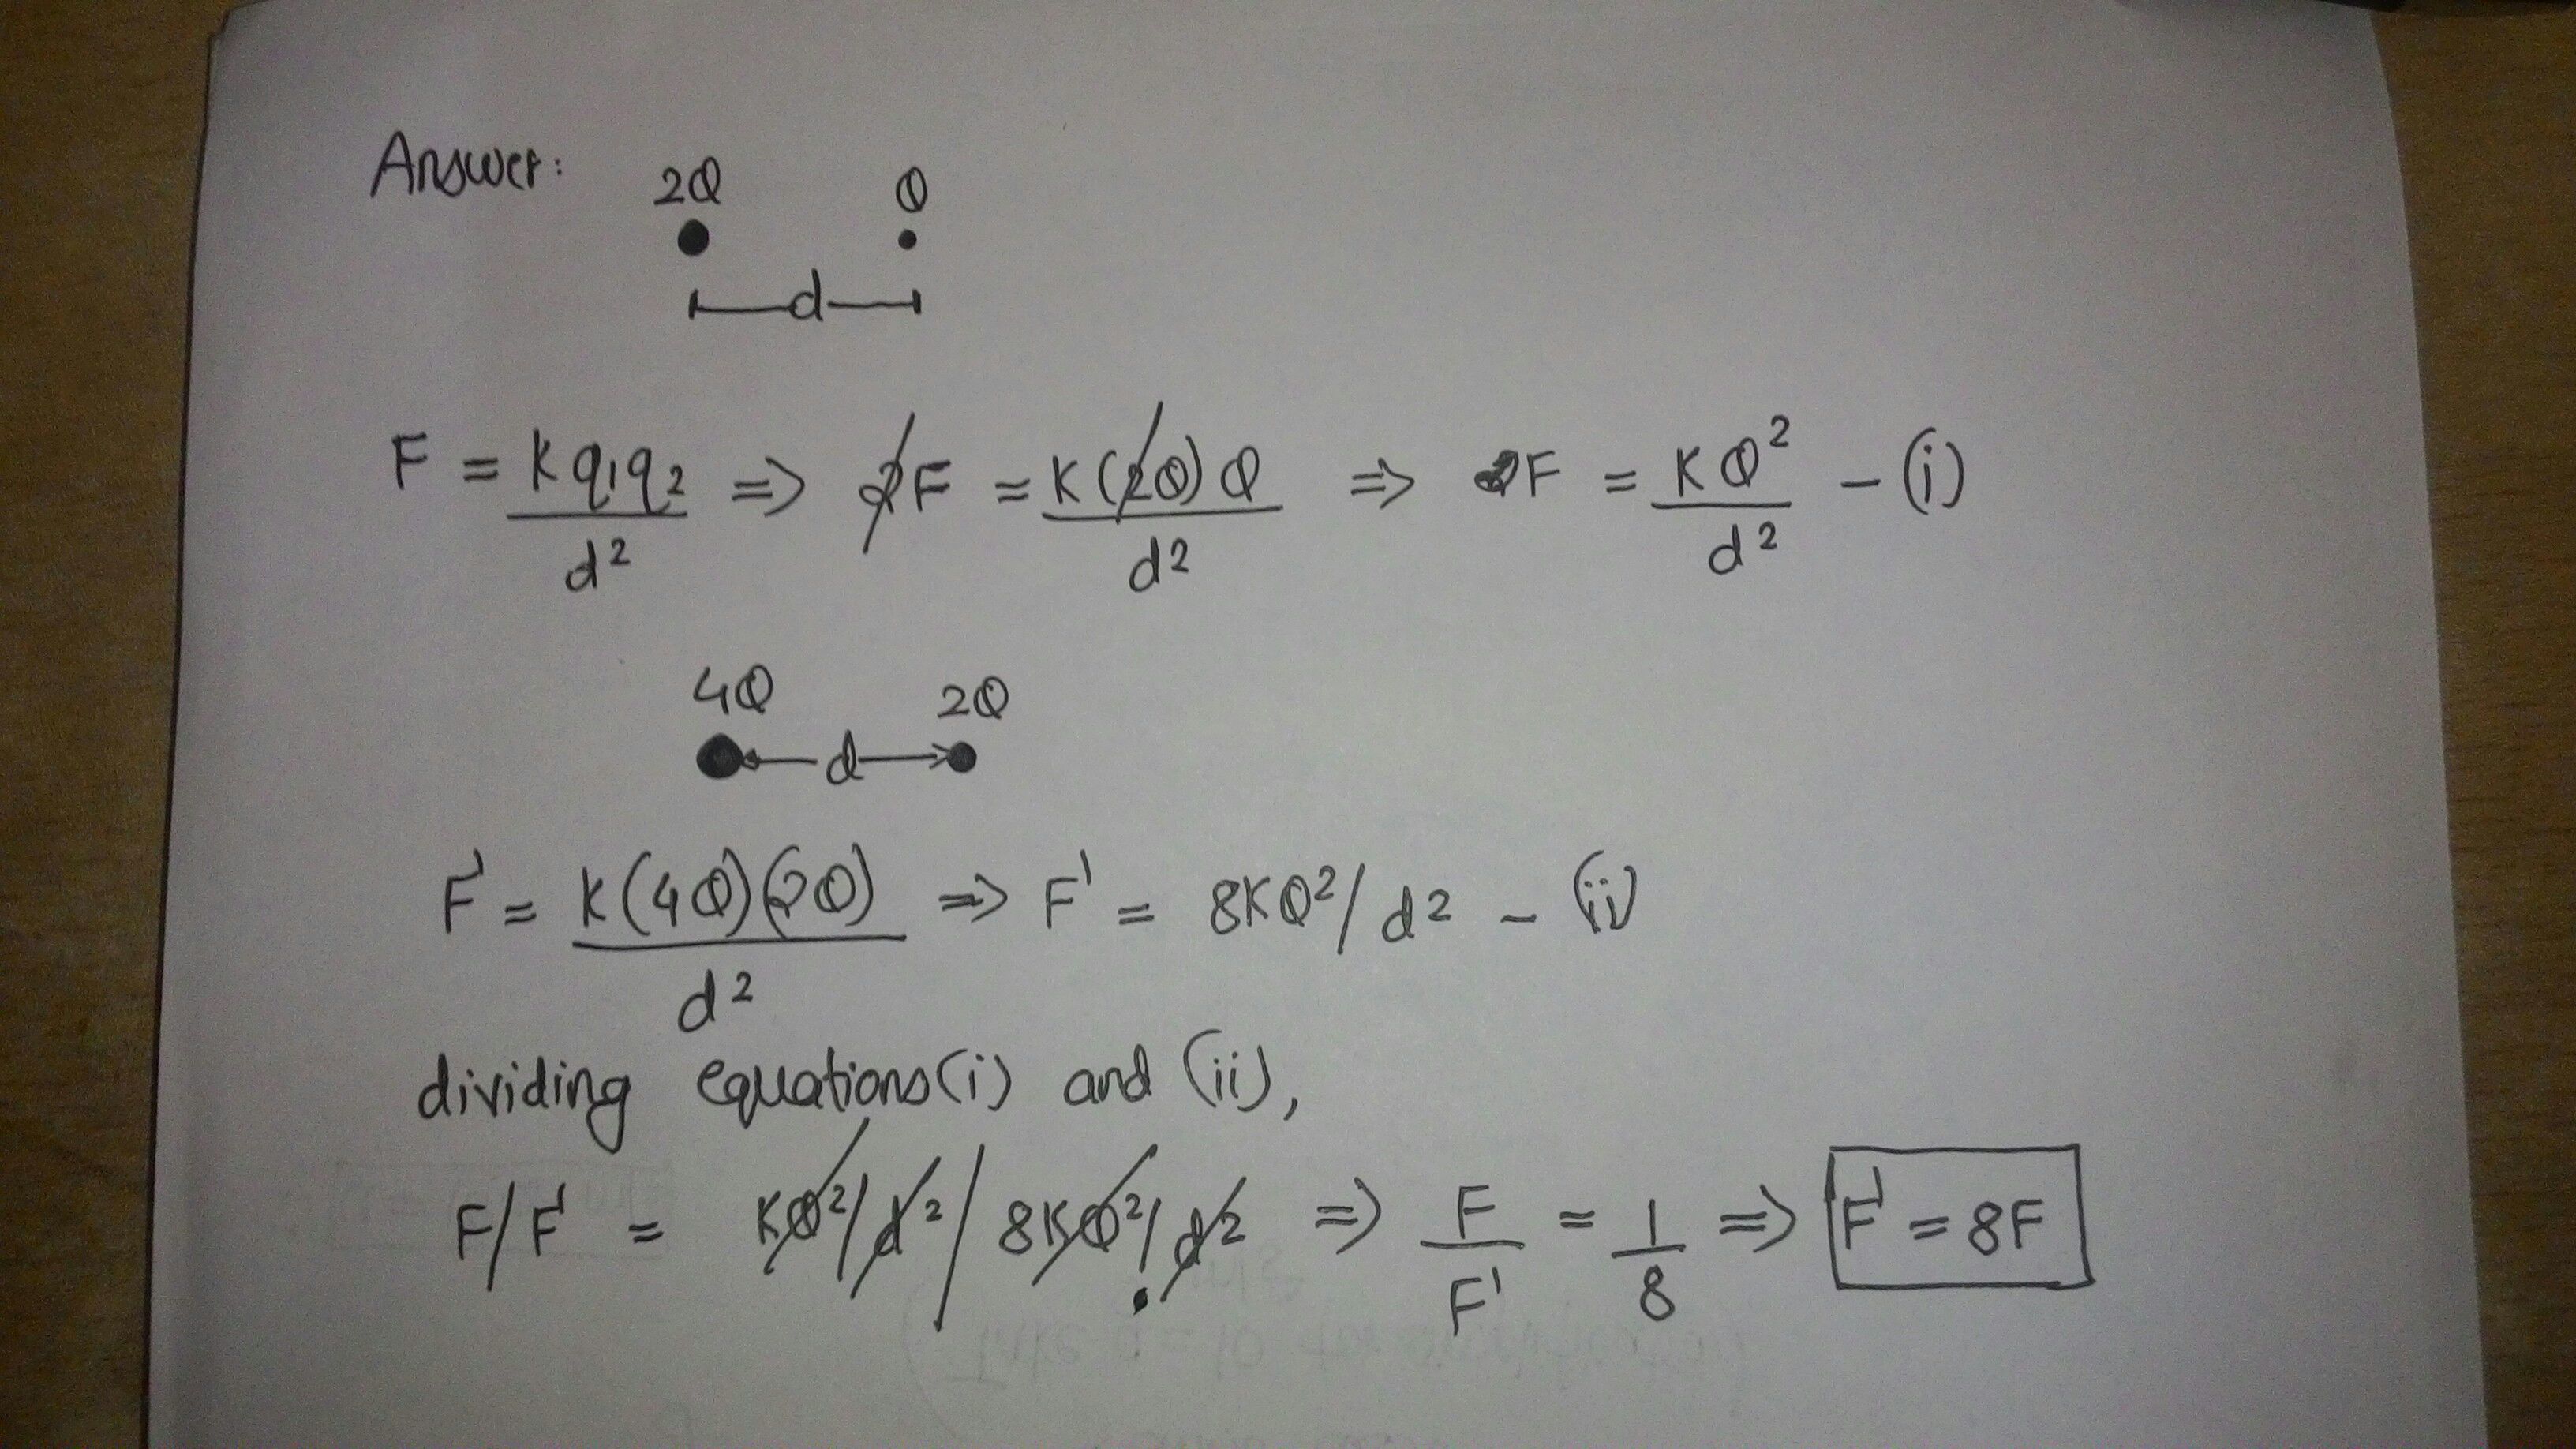 Answer:
2Q Q
d
F = Kq1q2/d² => 2F = K(2Q)Q/d² => F = KQ²/d² - (i)
4Q 2Q
d
F' = K(4Q)(2Q)/d² => F' = 8KQ²/d² - (ii)
dividing equations(i) and (ii),
F/F' = KQ²/d²/8KQ²/d² => F/F' = 1/8 => F' = 8F